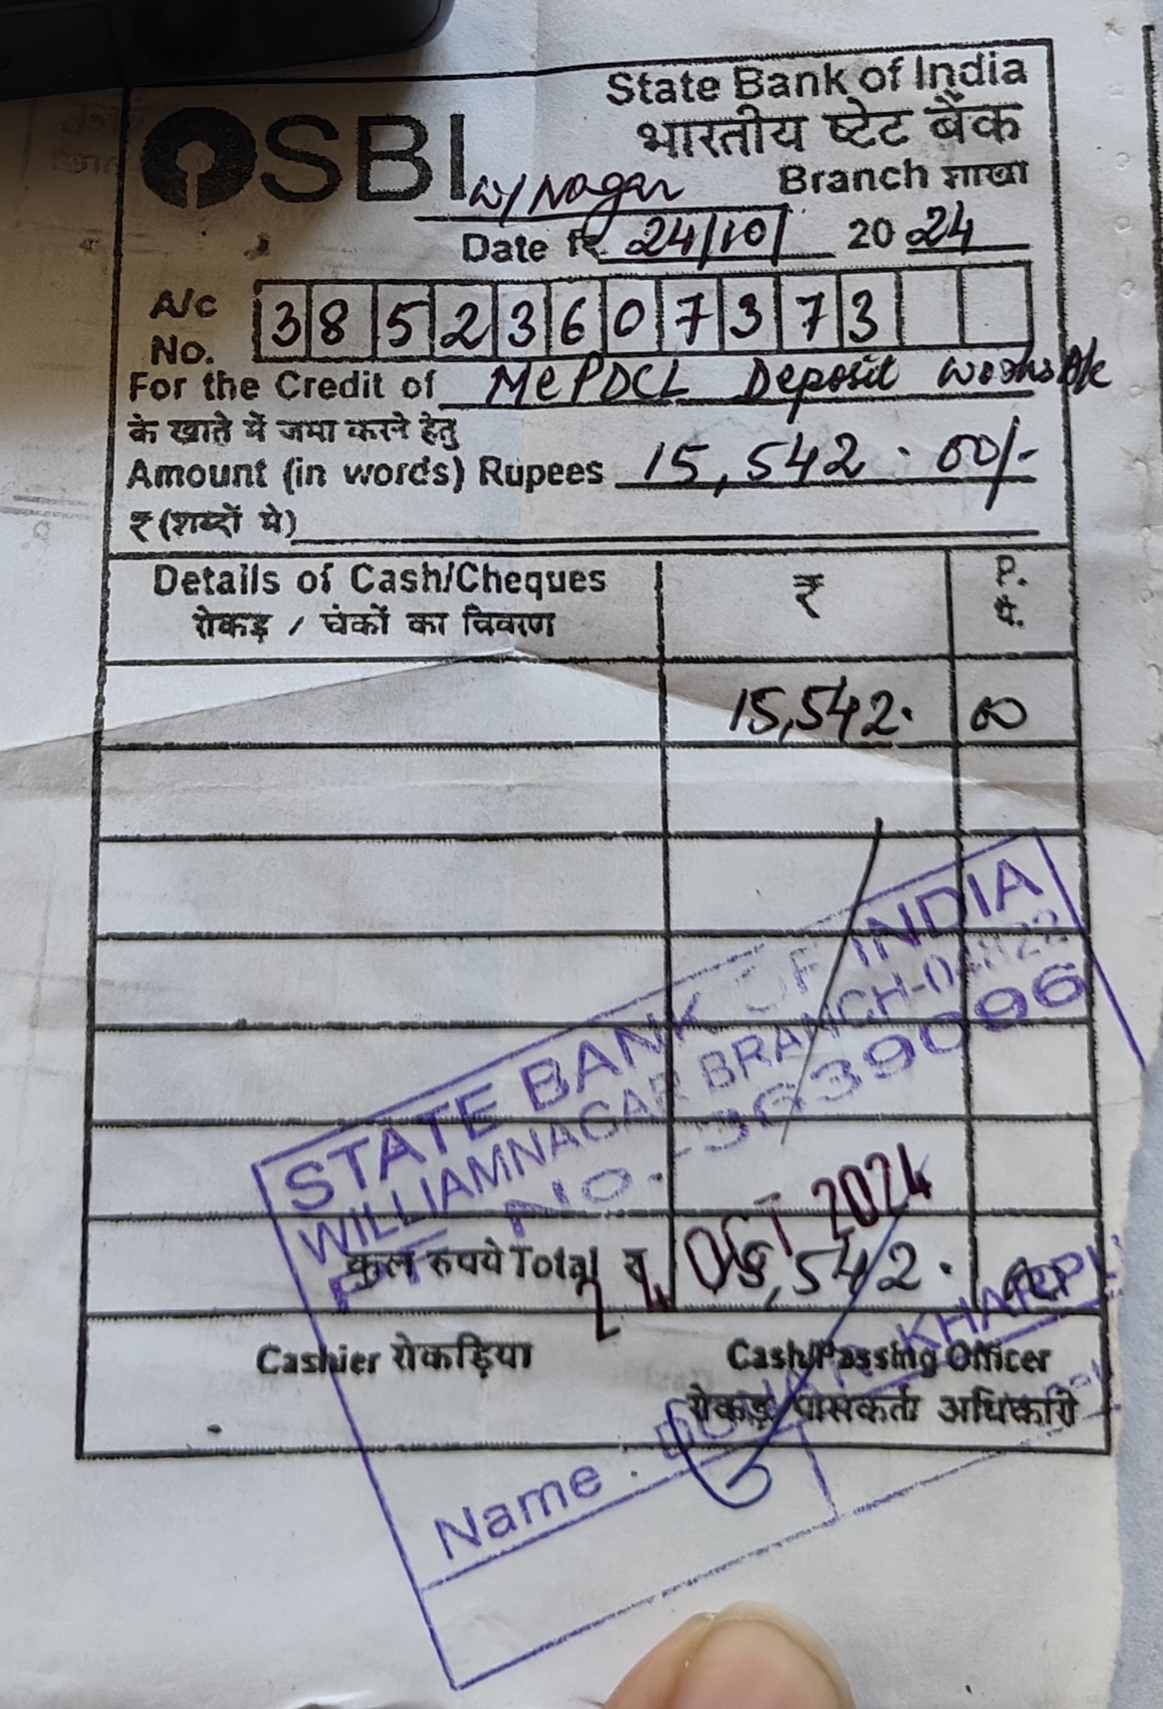 State Bank of India
भारतीय स्टेट बैंक
SBI
W/Nagar Branch शाखा
Date दि. 24/10/ 20 24
A/c No. 38523607373
For the Credit of MePDCL Deposit works A/c
के खाते में जमा करने हेतु
Amount (in words) Rupees 15,542.00/-
₹ (शब्दों मे)
Details of Cash/Cheques ₹ P.
रोकड़ / चेकों का विवरण पै.
15,542. 00
STATE BANK OF INDIA
WILLIAMNAGAR BRANCH-04822
P.F. NO.-3639096
OCT 2024
कुल रुपये Total ₹ 15,542. 00
Cashier रोकड़िया Cash/Passing Officer
रोकड़ पासकर्ता अधिकारी
Name :